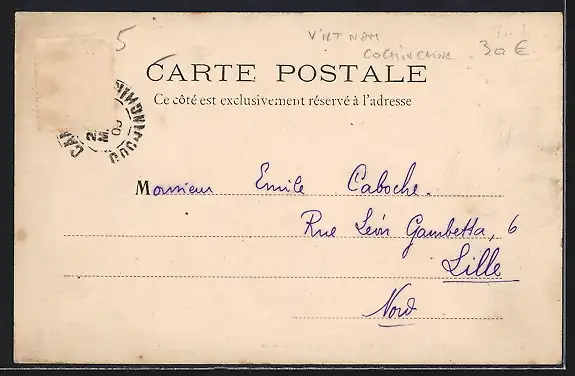 5
VIET NAM
COCHINCHINE
30 €
CARTE POSTALE
Ce côté est exclusivement réservé à l'adresse
Monsieur Emile Caboche.
Rue Léon Gambetta, 6
Lille
Nord